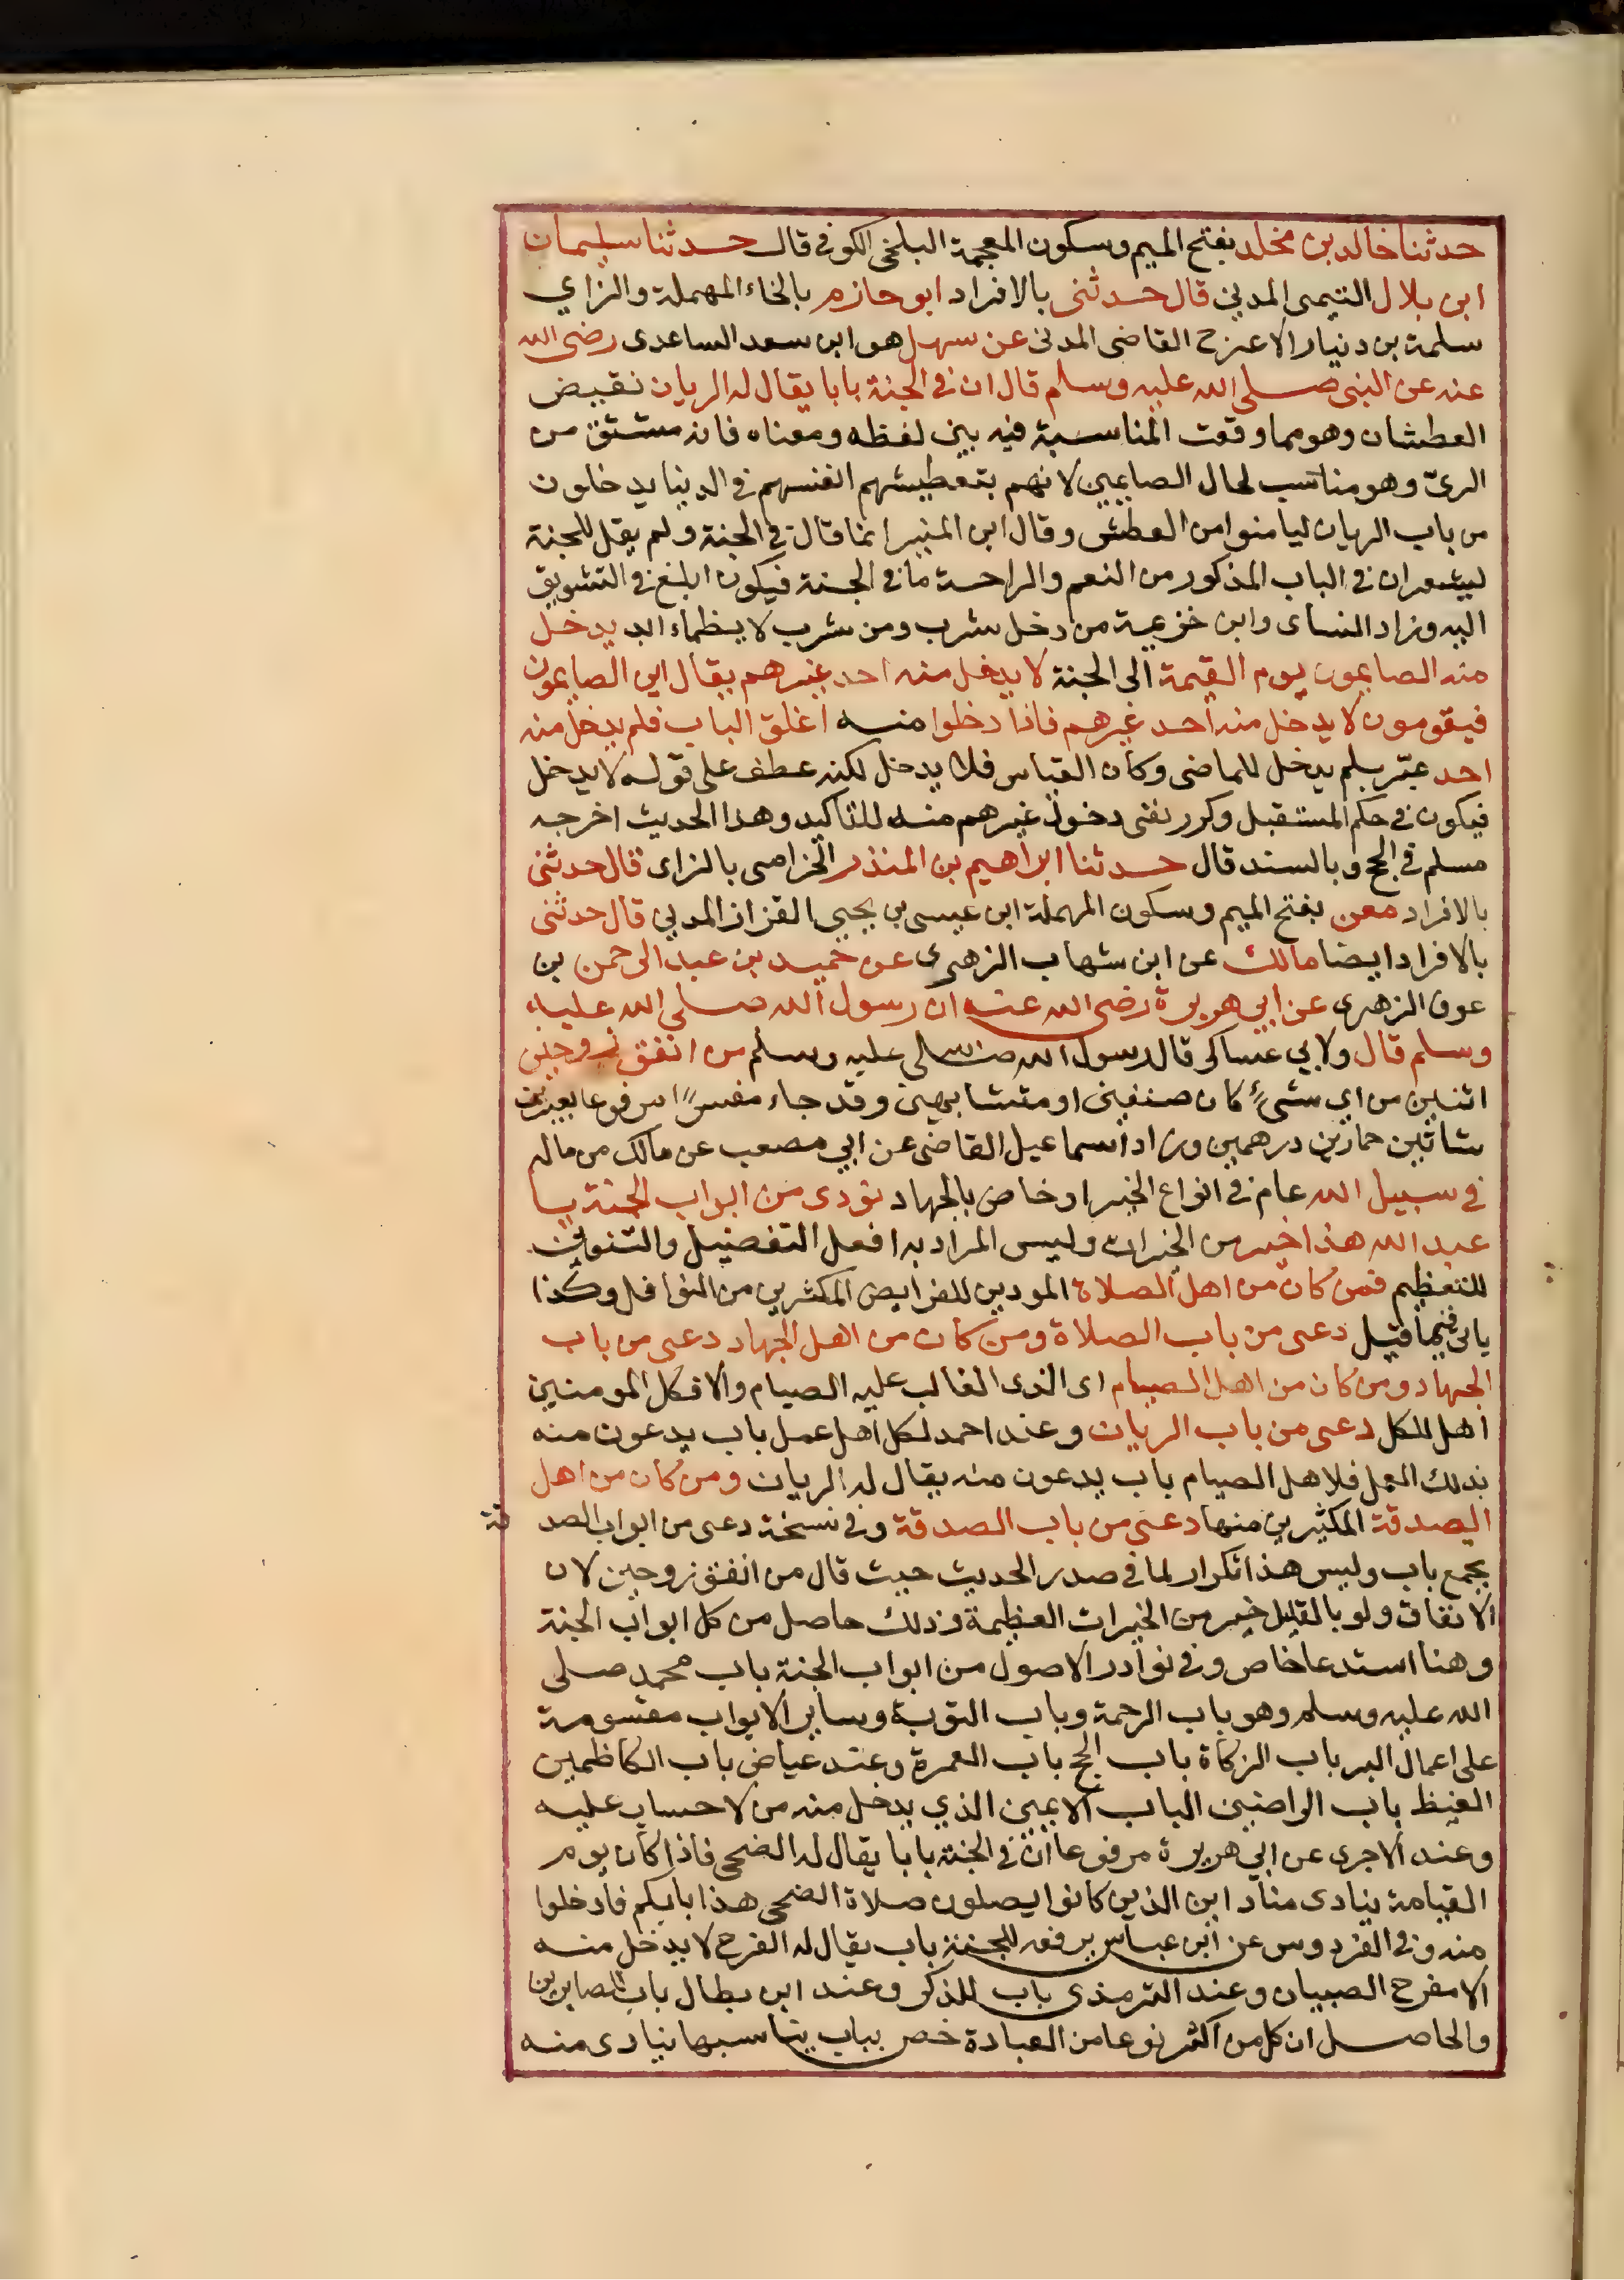 حدثنا خالد بن مخلد بفتح الميم وسكون المعجمة البلخى الكوفى قال حدثنا سليمان
ابن بلال التيمى المدنى قال حدثنى بالافراد ابو حازم بالخاء المهملة والزاي
سلمة بن دنيار الاعرج القاضى المدنى عن سهل هو ابن سعد الساعدى رضى الله
عنه عن النبى صلى الله عليه وسلم قال ان فى الجنة بابا يقال له الريان نقيض
العطشان وهو مما وقعت المناسبة فيه بين لفظه ومعناه فانه مشتق من
الرىّ وهو مناسب لحال الصايمين لانهم بتعطيشهم انفسهم فى الدينا يدخلون
من باب الريان ليامنوا من العطش وقال ابن المنير انما قال فى الجنة ولم يقل للجنة
ليشعر ان فى الباب المذكور من النعم والراحة ما فى الجنة فيكون ابلغ فى التشويق
اليه وزاد النساى وابن خزيمة من دخل شرب ومن شرب لا يظماء ابد يدخل
منه الصايمون يوم القيمة الى الجنة لا يدخل منه احد غيرهم يقال اين الصايمون
فيقومون لا يدخل منه احد غيرهم فاذا دخلوا منه اغلق الباب فلم يدخل منه
احد عبّر بلم يدخل للماضى وكان القياس فلا يدخل لكنه عطف على قوله لا يدخل
فيكون فى حكم المستقبل وكرر نفى دخول غيرهم منه للتاكيد وهذا الحديث اخرجه
مسلم فى الحج وبالسند قال حدثنا ابراهيم بن المنذر الخزامى بالزاى قال حدثنى
بالافراد معن بفتح الميم وسكون المهملة ابن عيسى بن يحيى القزاز المدنى قال حدثنى
بالافراد ايضا مالك عن ابن شهاب الزهرى عن حميد بن عبد الرحمن بن
عوف الزهرى عن ابي هريرة رضى الله عنه ان رسول الله صلى الله عليه
وسلم قال ولابي عساكر قال رسول الله صلى الله عليه وسلم من انفق زوجين
اثنين من اي شئ كان صنفين او متشابهين وقد جاء مفسرا مرفوعا بعيرين
شاتين حمارين درهمين وزاد اسماعيل القاضى عن ابي مصعب عن مالك من ماله
فى سبيل الله عام فى انواع الخير او خاص بالجهاد نودى من ابواب الجنة يا
عبد الله هذا خير من الخيرات وليس المراد به افعل التفضيل والتنوين
للتعظيم فمن كان من اهل الصلاة المودين للفرايض المكثرين من النوافل وكذا
ياتى فيما قيل دعى من باب الصلاة ومن كان من اهل الجهاد دعى من باب
الجهاد ومن كان من اهل الصيام اى الذى الغالب عليه الصيام والا فكل المومنين
اهل للكل دعى من باب الريان وعند احمد لكل اهل عمل باب يدعون منه
بذلك العمل فلاهل الصيام باب يدعون منه يقال له الريان ومن كان من اهل
الصدقة المكثرين منها دعى من باب الصدقة وفى نسخة دعى من ابواب الصدقة
بجمع باب وليس هذا تكرار لما فى صدر الحديث حيث قال من انفق زوجين لان
الانفاق ولو بالقليل خير من الخيرات العظيمة وذلك حاصل من كل ابواب الجنة
وهنا استدعا خاص وفى نوادر الاصول من ابواب الجنة باب محمد صلى
الله عليه وسلم وهو باب الرحمة وباب التوبة وساير الابواب مقسومة
على اعمال البر باب الزكاة باب الحج باب العمرة وعند عياض باب الكاظمين
الغيظ باب الراضين الباب الايمين الذي يدخل منه من لا حساب عليه
وعند الاجرى عن ابي هريرة مرفوعا ان فى الجنة بابا يقال له الضحى فاذا كان يوم
القيامة ينادى مناد اين الذين كانوا يصلون صلاة الضحى هذا بابكم فادخلوا
منه وفى الفردوس عن ابن عباس يرفعه للجنة باب يقال له الفرح لا يدخل منه
الا مفرح الصبيان وعند الترمذى باب للذكر وعند ابن بطال باب الصابرين
والحاصل ان كل من اكثر نوعا من العبادة خص بباب يناسبها ينادى منه